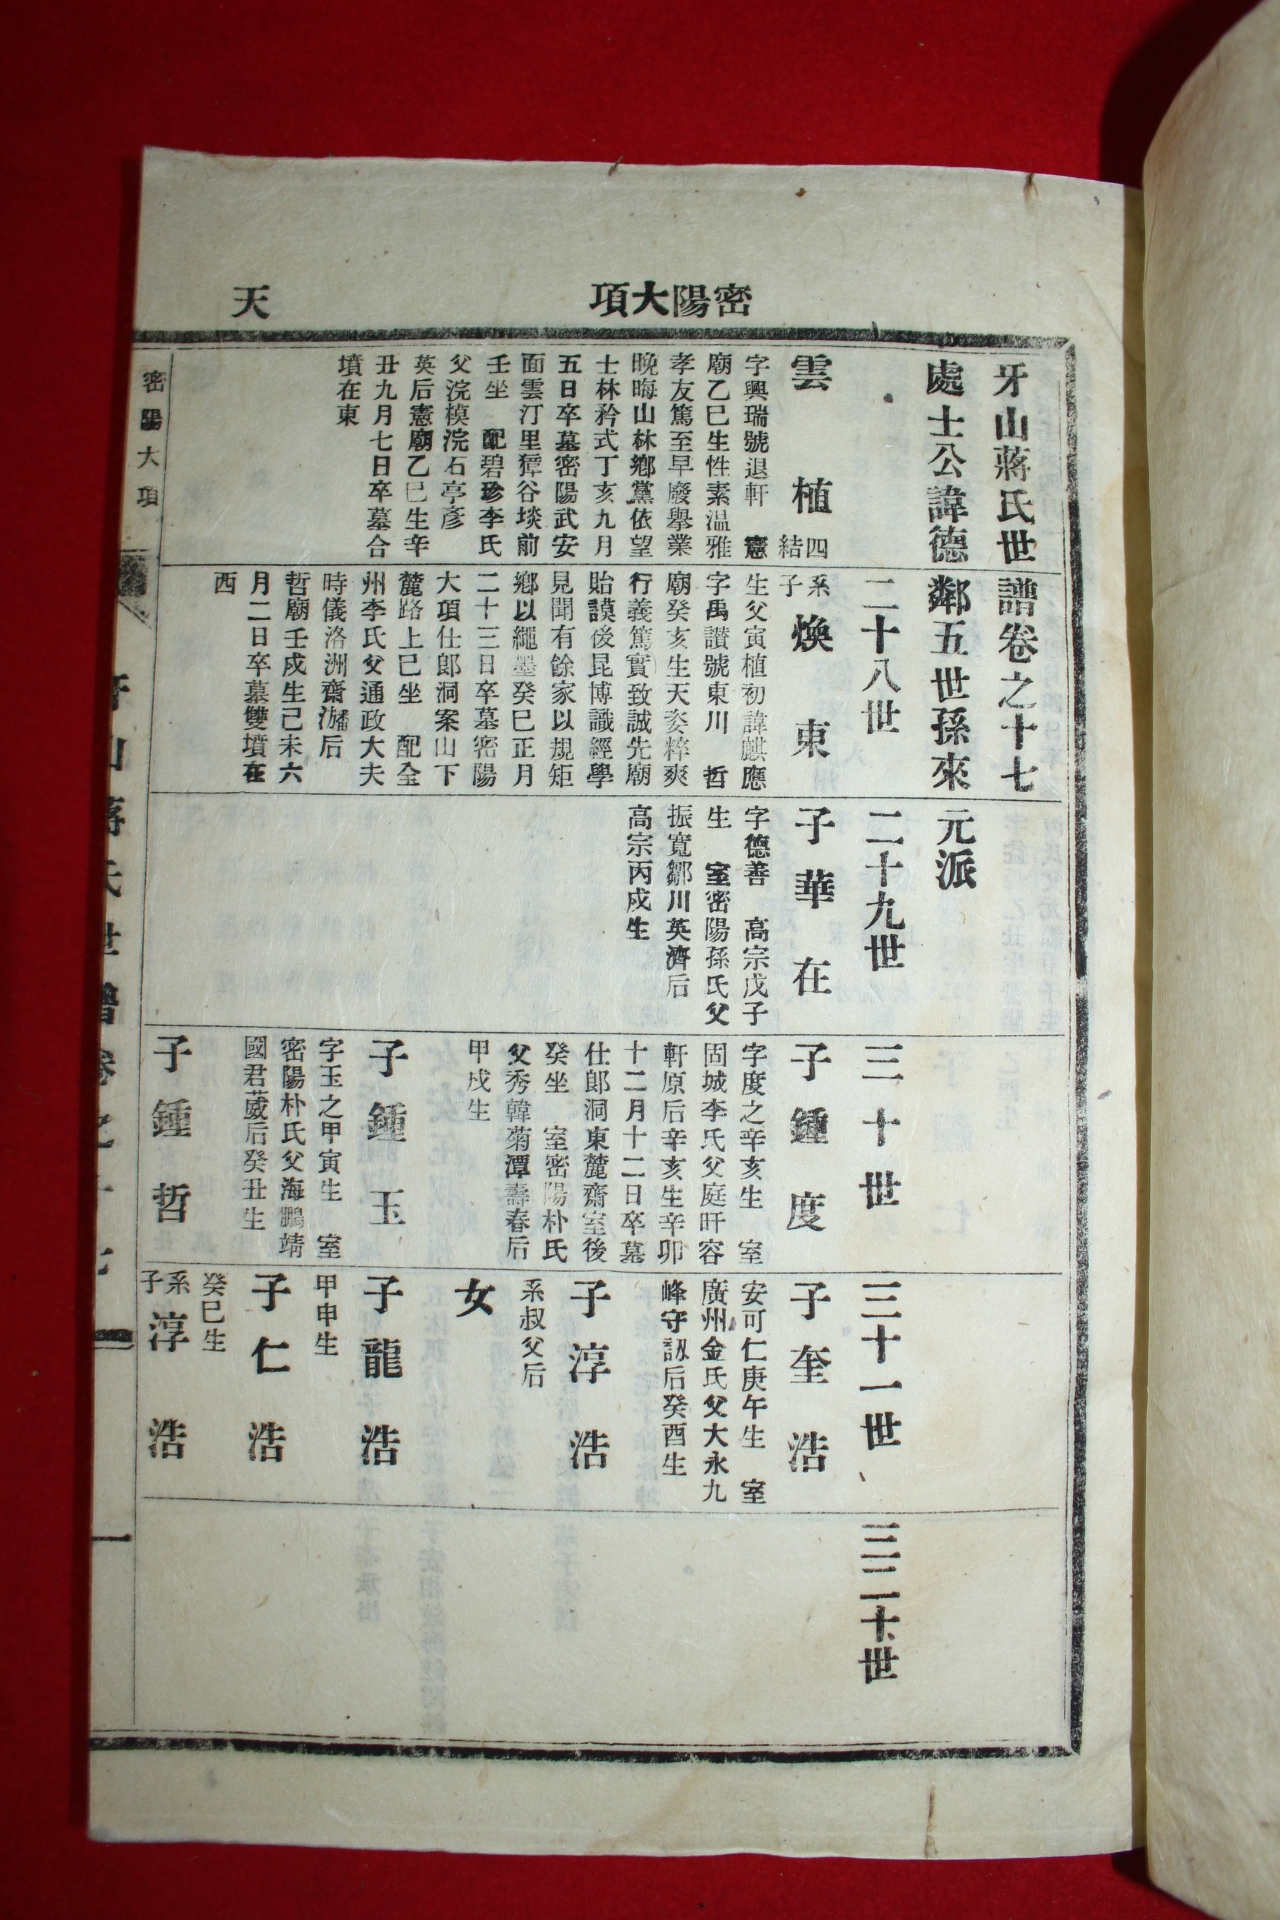 天
密陽大項
牙山蔣氏世譜卷之十七
處士公諱德鄰五世孫來元派
二十八世
二十九世
三十世
三十一世
三二十世
雲植 四結
字興瑞號退軒 憲
廟乙巳生性素溫雅
孝友篤至早廢擧業
晩晦山林鄕黨依望
士林矜式丁亥九月
五日卒墓密陽武安
面雲汀里獐谷埮前
壬坐 配碧珍李氏
父浣模浣石亭彥
英后憲廟乙巳生辛
丑九月七日卒墓合
墳在東
系子 煥東
生父寅植初諱麒應
字禹讃號東川 哲
廟癸亥生天姿粹爽
行義篤實致誠先廟
貽謨後昆博識經學
見聞有餘家以規矩
鄕以繩墨癸巳正月
二十三日卒墓密陽
大項仕郞洞案山下
麓路上巳坐 配全
州李氏父通政大夫
時儀洛洲齋潘后
哲廟壬戌生己未六
月二日卒墓雙墳在
西
子華在
字德善 高宗戊子
生 室密陽孫氏父
振寬鄒川英濟后
高宗丙戌生
子鍾度
字度之辛亥生 室
固城李氏父庭旰容
軒原后辛亥生辛卯
十二月十二日卒墓
仕郞洞東麓齋室後
癸坐 室密陽朴氏
父秀韓菊潭壽春后
甲戌生
子鍾玉
字玉之甲寅生 室
密陽朴氏父海鵬靖
國君葳后癸丑生
子鍾哲
子奎浩
安可仁庚午生 室
廣州金氏父大永九
峰守訒后癸酉生
子淳浩
系叔父后
女
子龍浩
甲申生
子仁浩
癸巳生
系子 淳浩
密陽大項
牙山蔣氏世譜卷之十七
一